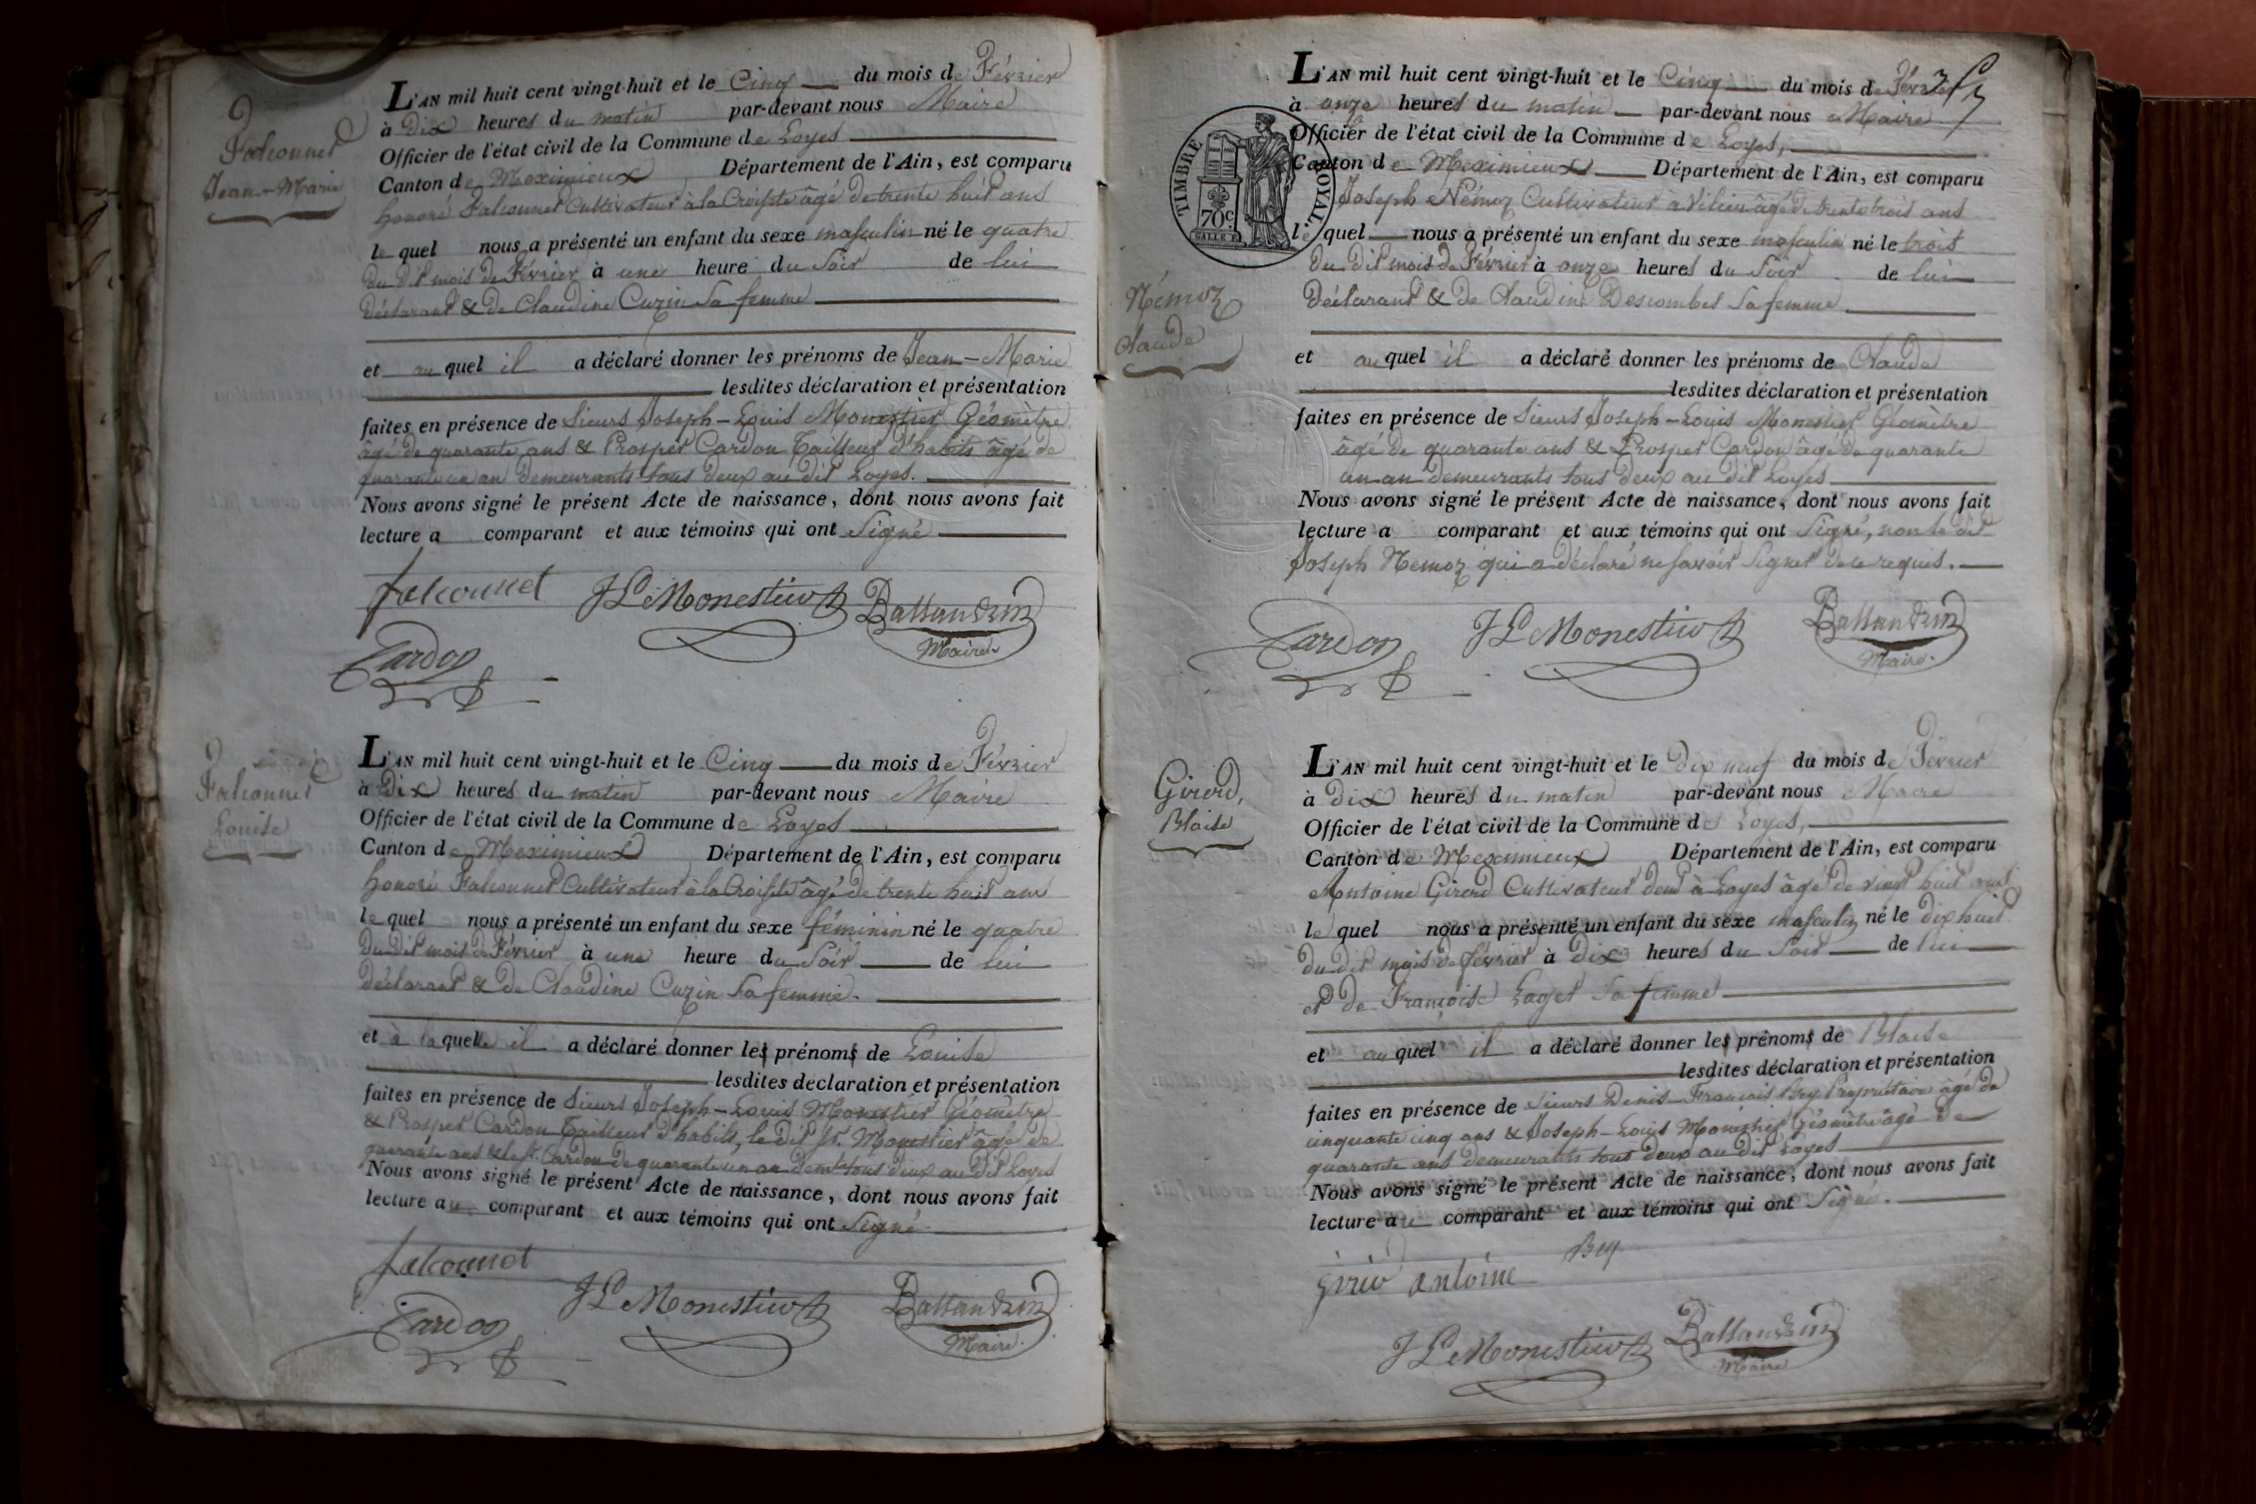 Falconnet
Jean-Marie
L'AN mil huit cent vingt-huit et le Cinq du mois de Février
à Dix heures du matin par-devant nous Maire
Officier de l'état civil de la Commune de Loyes
Canton de Meximieux Département de l'Ain, est comparu
honoré Falconnet Cultivateur à la Croiste âgé de trente huit ans
le quel nous a présenté un enfant du sexe masculin né le quatre
du dit mois de Février à une heure du Soir de lui
Déclarant & de Claudine Cuzin Sa femme
et au quel il a déclaré donner les prénoms de Jean-Marie
lesdites déclaration et présentation
faites en présence de Sieurs Joseph-Louis Monestier Géomètre
âgé de quarante ans & Prosper Cardon Tailleur d'habits âgé de
quarante un an demeurants tous deux au dit Loyes.
Nous avons signé le présent Acte de naissance, dont nous avons fait
lecture a comparant et aux témoins qui ont Signé
falconnet JL Monestier Ballandrin
Maire
Cardon
Falconnet
Louise
L'AN mil huit cent vingt-huit et le Cinq du mois de Février
à Dix heures du matin par-devant nous Maire
Officier de l'état civil de la Commune de Loyes
Canton de Meximieux Département de l'Ain, est comparu
honoré Falconnet Cultivateur à la Croiste âgé de trente huit ans
le quel nous a présenté un enfant du sexe féminin né le quatre
du dit mois de Février à une heure du Soir de lui
déclarant & de Claudine Cuzin Sa femme.
et à laquelle il a déclaré donner les prénoms de Louise
lesdites declaration et présentation
faites en présence de Sieurs Joseph-Louis Monestier Géomètre
& Prosper Cardon Tailleur d'habits, le dit Sr. Monestier âgé de
quarante ans & le Sr. Cardon de quarante un an demt. tous deux au dit Loyes
Nous avons signé le présent Acte de naissance, dont nous avons fait
lecture au comparant et aux témoins qui ont Signé
falconnet
Cardon JL Monestier Ballandrin
Maire.
TIMBRE ROYAL
70c.
L'AN mil huit cent vingt-huit et le Cinq du mois de Février
à onze heures du matin par-devant nous Maire
Officier de l'état civil de la Commune de Loyes,
Canton de Meximieux Département de l'Ain, est comparu
Joseph Némoz Cultivateur à Vilieu âgé de trente trois ans
le quel nous a présenté un enfant du sexe masculin né le trois
du dit mois de Février à onze heures du Soir de lui
Némoz
Claude
Déclarant & de Claudine Descombes Sa femme
et au quel il a déclaré donner les prénoms de Claude
lesdites déclaration et présentation
faites en présence de Sieurs Joseph-Louis Monestier Géomètre
âgé de quarante ans & Prosper Cardon âgé de quarante
un an demeurants tous deux au dit Loyes
Nous avons signé le présent Acte de naissance, dont nous avons fait
lecture a comparant et aux témoins qui ont Signé, non le dit
Joseph Nemoz qui a déclaré ne savoir Signer de ce requis.
Cardon JL Monestier Ballandrin
Maire.
Girord,
Blaise
L'AN mil huit cent vingt-huit et le Dix neuf du mois de Février
à Dix heures du matin par-devant nous Maire
Officier de l'état civil de la Commune de Loyes,
Canton de Meximieux Département de l'Ain, est comparu
Antoine Girord Cultivateur demt à Loyes âgé de vingt huit ans
le quel nous a présenté un enfant du sexe masculin né le dix huit
du dit mois de février à Dix heures du Soir de lui
et de Françoise Laget Sa femme
et au quel il a déclaré donner les prénoms de Blaise
lesdites déclaration et présentation
faites en présence de Sieurs Denis-François Bey Propriétaire âgé de
cinquante cinq ans & Joseph-Louis Monestier Géomètre âgé de
quarante ans demeurants tous deux au dit Loyes
Nous avons signé le présent Acte de naissance, dont nous avons fait
lecture au comparant et aux témoins qui ont Signé.
Bey
Antoine
JL Monestier Ballandrin
Maire